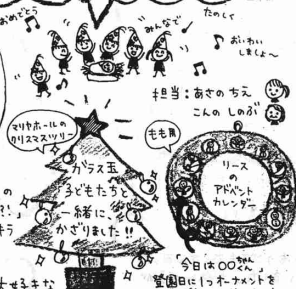 おめでとう
みんなで
たのしく
おいわい
しましょ〜
担当：あさの ちえ
こんの しのぶ
マリヤホールの
クリスマスツリー
ガラス玉
子どもたちと
一緒に、
かざりました!!
もも用
リース
の
アドベント
カレンダー
の
?!
「今日は〇〇ちゃんくん」
登園日に1つオーナメントを